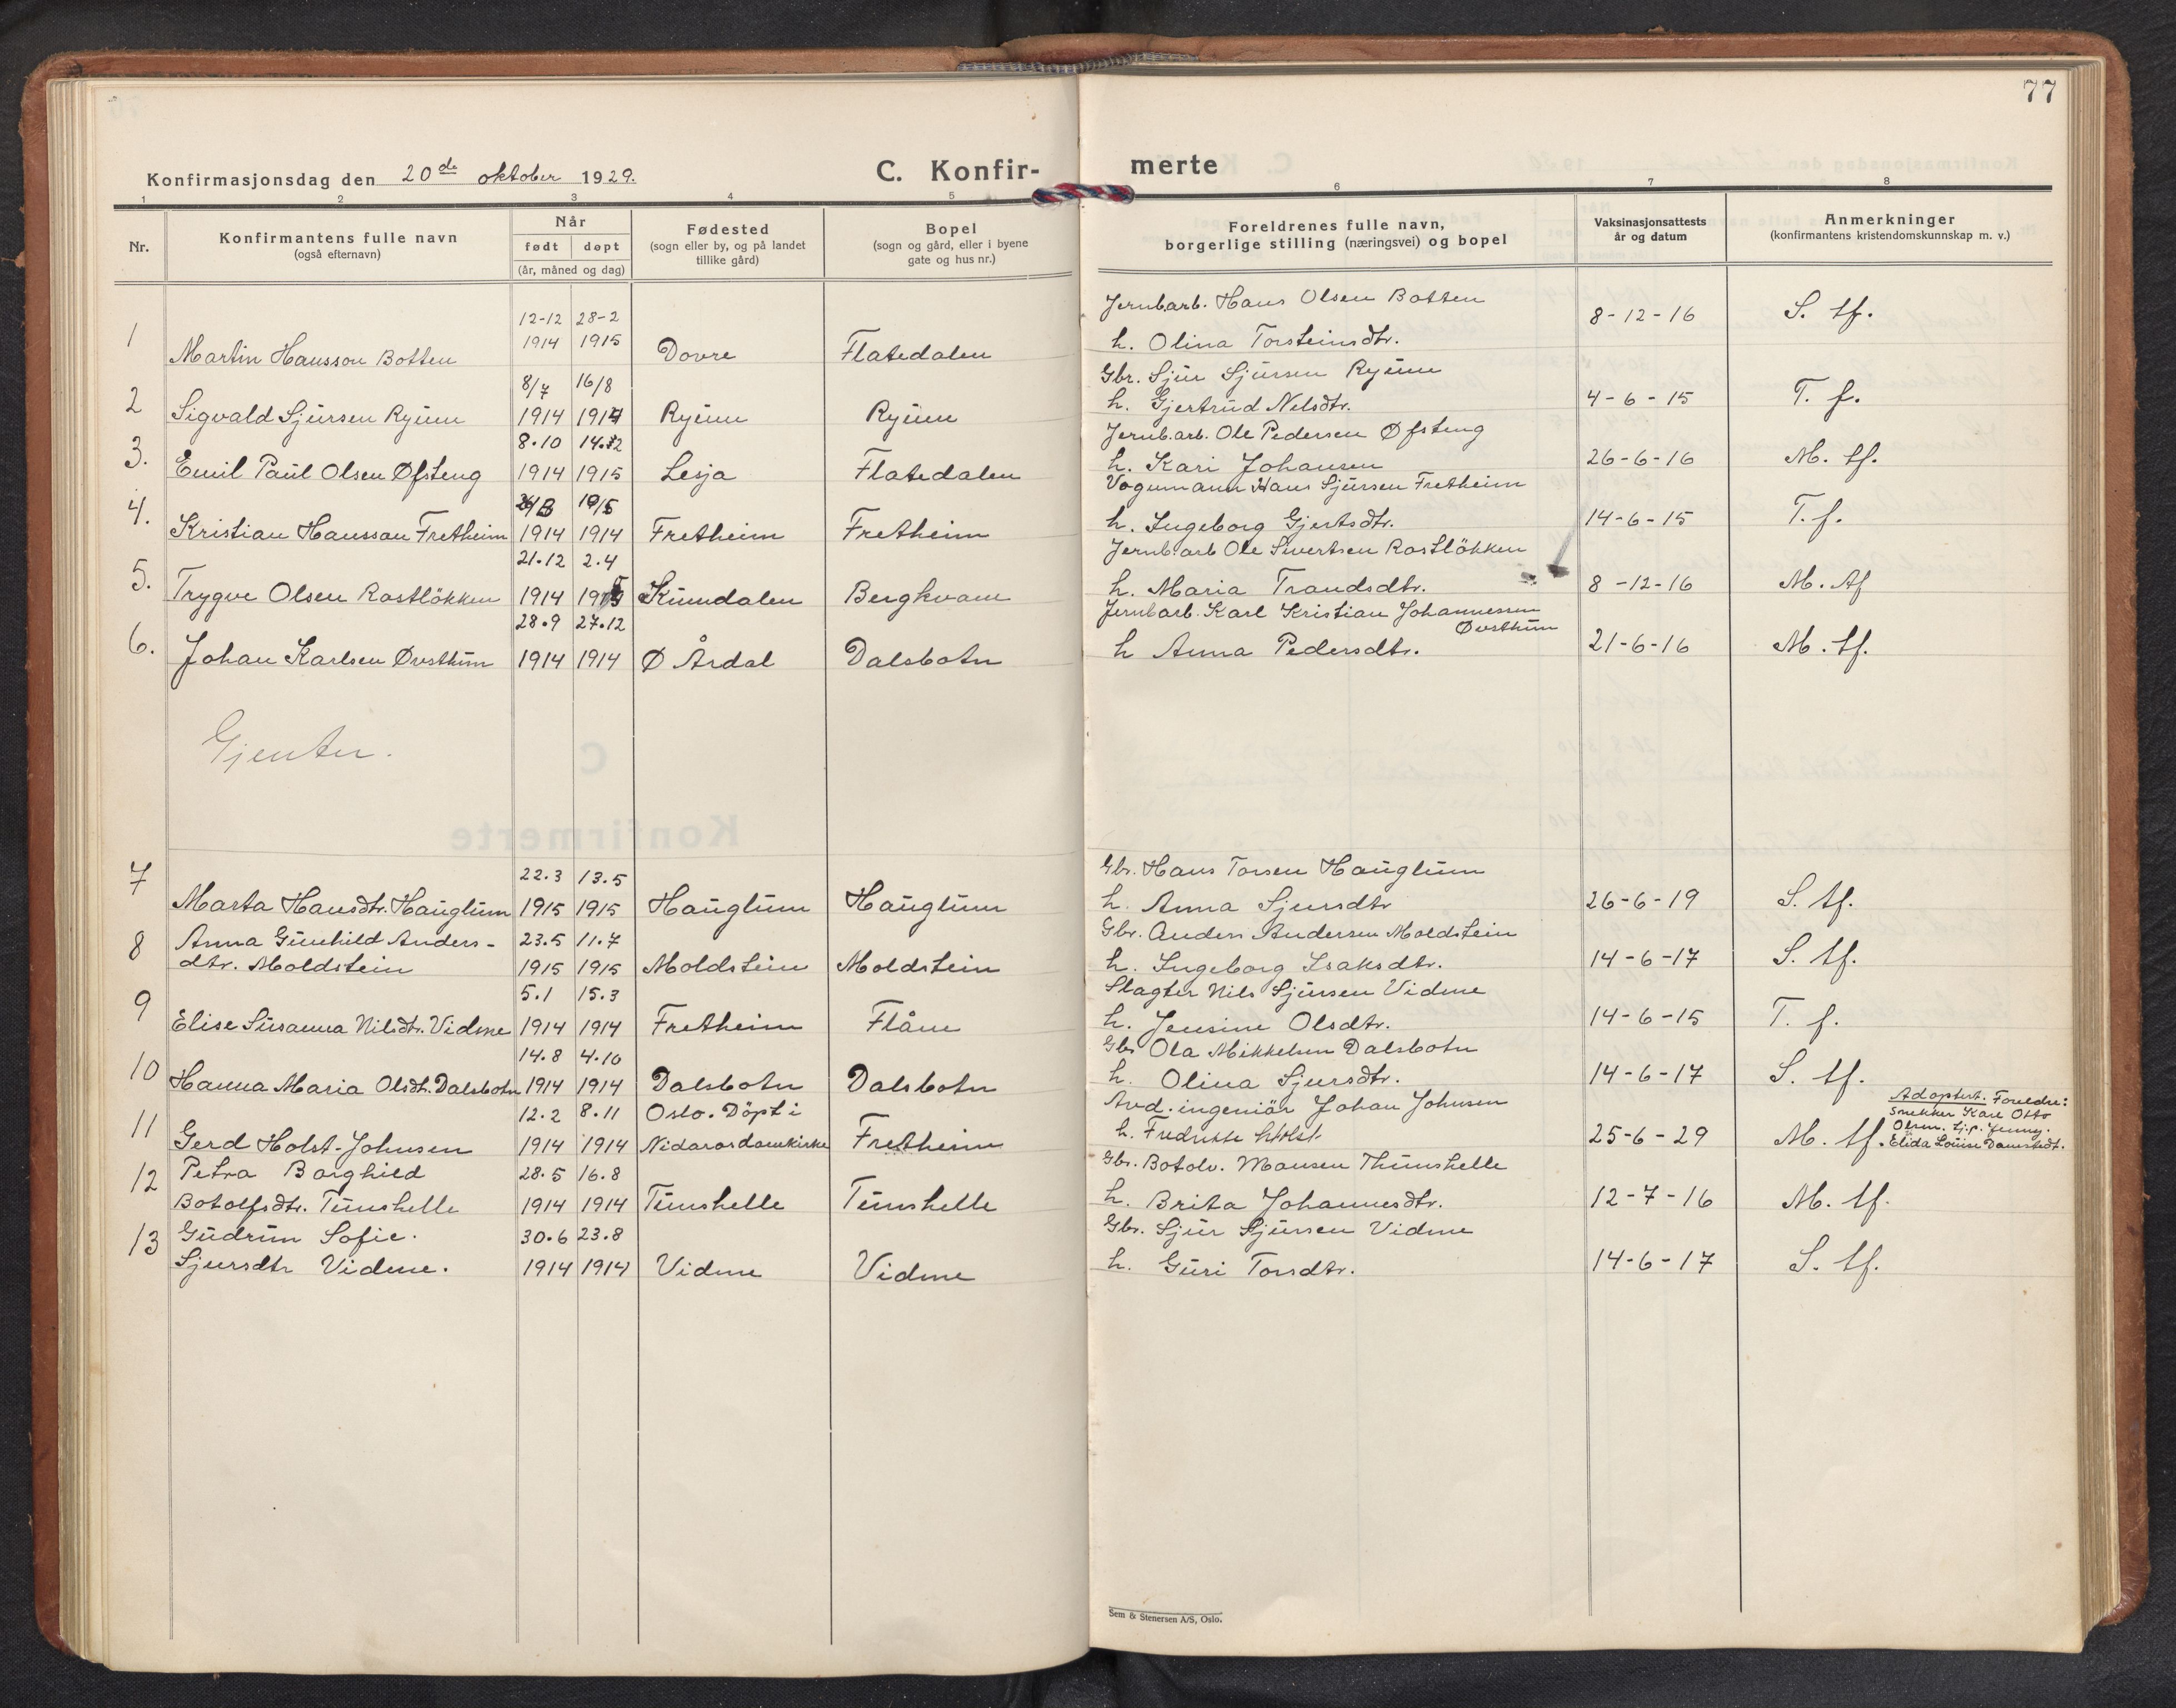 77
Konfirmasjonsdag den 20de oktober 1929.
C. Konfir-
merte
1 2 3 4 5 6 7 8
Nr.
Konfirmantens fulle navn
(også efternavn)
Når
født døpt
(år, måned og dag)
Fødested
(sogn eller by, og på landet
tillike gård)
Bopel
(sogn og gård, eller i byene
gate og hus nr.)
Foreldrenes fulle navn,
borgerlige stilling (næringsvei) og bopel
Vaksinasjonsattests
år og datum
Anmerkninger
(konfirmantens kristendomskunnskap m. v.)
12-12 28-2 Jernb.arb. Hans Olsen Botten
1 Martin Hansson Botten 1914 1915 Dovre Flatedalen h. Olina Torsteinsdtr. 8-12-16 S. tf.
8/7 16/8 Gbr. Sjur Sjursen Ryum
2 Sigvald Sjursen Ryum 1914 1914 Ryum Ryum h. Gjertrud Nilsdtr. 4-6-15 T. f.
8.10 14. Jernb.arb. Ole Pedersen Øfsteng
3. Emil Paul Olsen Øfsteng 1914 1915 Lesja Flatedalen h. Kari Johansen 26-6-16 M. tf.
Vognmann Hans Sjursen Fretheim
4. Kristian Hansson Fretheim 1914 1914 Fretheim Fretheim h. Ingeborg Gjertsdtr. 14-6-15 T. f.
21.12 2.4 Jernb arb Ole Sivertsen Rostlökken
5. Trygve Olsen Rostlökken 1914 1915 Kunndalen Berghvam h. Maria Trondsdtr. 8-12-16 M. tf
28.9 27.12 Jernb arb. Karl Kristian Johannessen
Øvsthun
6. Johan Karlsen Øvsthun 1914 1914 Ø Årdal Dalsbotn h Anna Pedersdtr. 21-6-16 M. tf.
Gjenter.
22.3 13.5 Gbr. Hans Torsen Hauglum
7 Marta Hansdtr. Hauglum 1915 1915 Hauglum Hauglum h. Anna Sjursdtr 26-6-19 S. tf.
8 Anna Gunhild Anders- 23.5 11.7 Gbr. Anders Andersen Moldstein
dtr. Moldstein 1915 1915 Moldstein Moldstein h. Ingeborg Isaksdtr. 14-6-17 S. tf.
5.1 15.3 Slagter Nils Sjursen Vidme
9 Elise Susanna Nilsdtr. Vidme 1914 1914 Fretheim Flåm h. Jensine Olsdtr. 14-6-15 T. f.
14.8 4.10 Gbr Ola Mikkelsen Dalsbotn
10 Hanna Maria Olsdtr. Dalsbotn 1914 1914 Dalsbotn Dalsbotn h. Olina Sjursdtr. 14-6-17 S. tf.
12.2 8.11 Oslo. Döpt i Avd. ingeniär Johan Johnsen
11 Gerd Holst-Johnsen 1914 1914 Nidarosdomkirke Fretheim h. Fredrikke Holst 25-6-29 M. tf.
Adoptert. Foreldre:
Snekker Karl Otto
Olsen. tj.p. Jenny.
Elida Louise Damstedt.
12 Petra Borghild 28.5 16.8 Gbr. Botolv. Monsen Thunshelle
Botolfsdtr. Tunshelle 1914 1914 Tunshelle Tunshelle h. Brita Johannesdtr. 12-7-16 M. tf.
13 Gudrun Sofie. 30.6 23.8 Gbr. Sjur Sjursen Vidme
Sjursdtr Vidme. 1914 1914 Vidme Vidme h. Guri Torsdtr. 14-6-17 S. tf.
Sem & Stenersen A/S, Oslo.